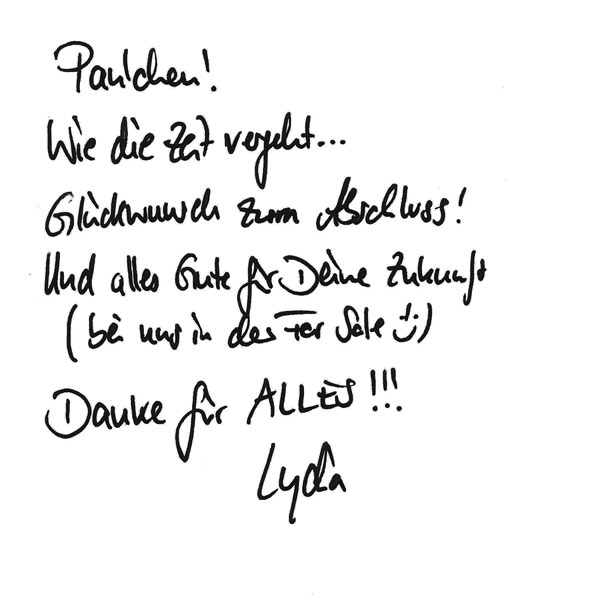 Paulchen!
Wie die Zeit vergeht...
Glückwunsch zum Abschluss!
Und alles Gute für Deine Zukunft
(bei uns in der Sale :))
Danke für ALLES!!!
Lyda